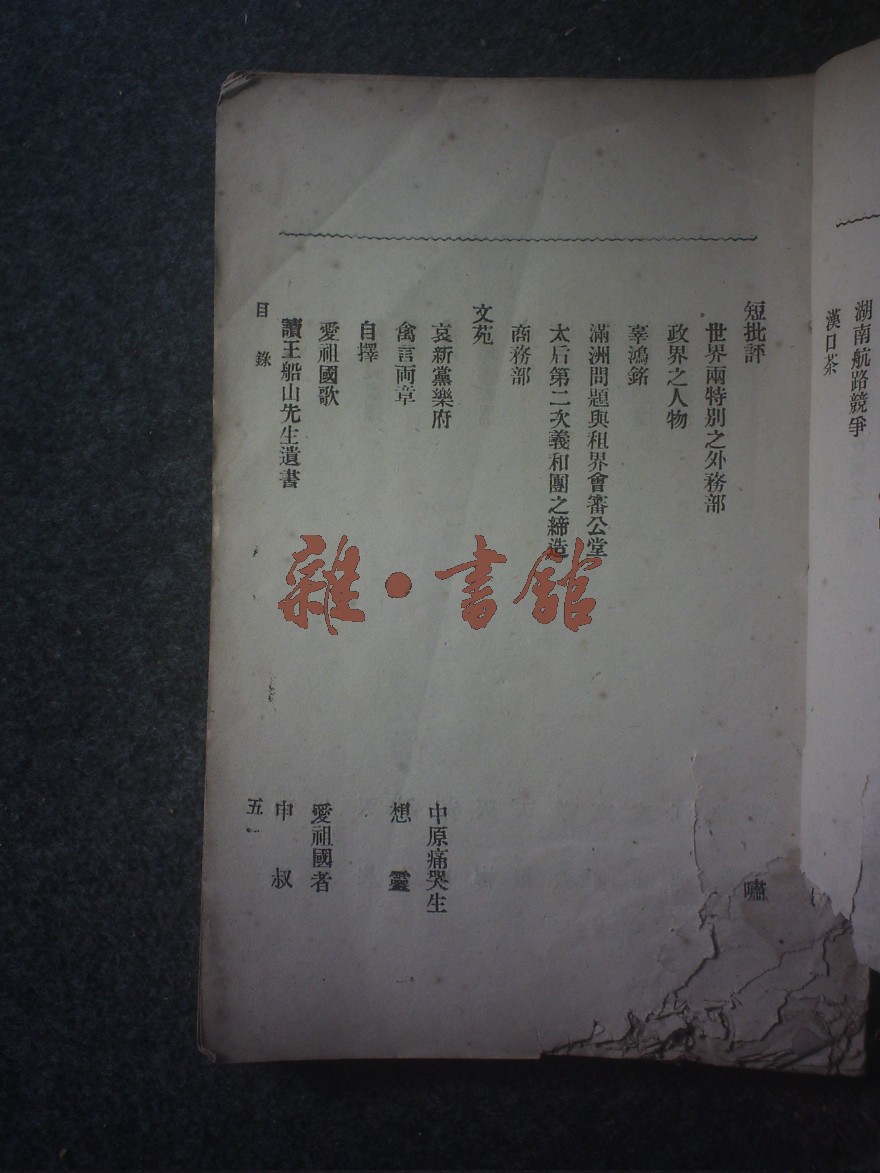 湖南航路競爭
漢口茶
短批評 嘯
世界兩特別之外務部
政界之人物
辜鴻銘
滿洲問題與租界會審公堂
太后第二次義和團之締造
商務部
文苑
哀新黨樂府 中原痛哭生
禽言両章 想靈
自擇
愛祖國歌 愛祖國者
讀王船山先生遺書 申叔
目錄 五
雜·書館